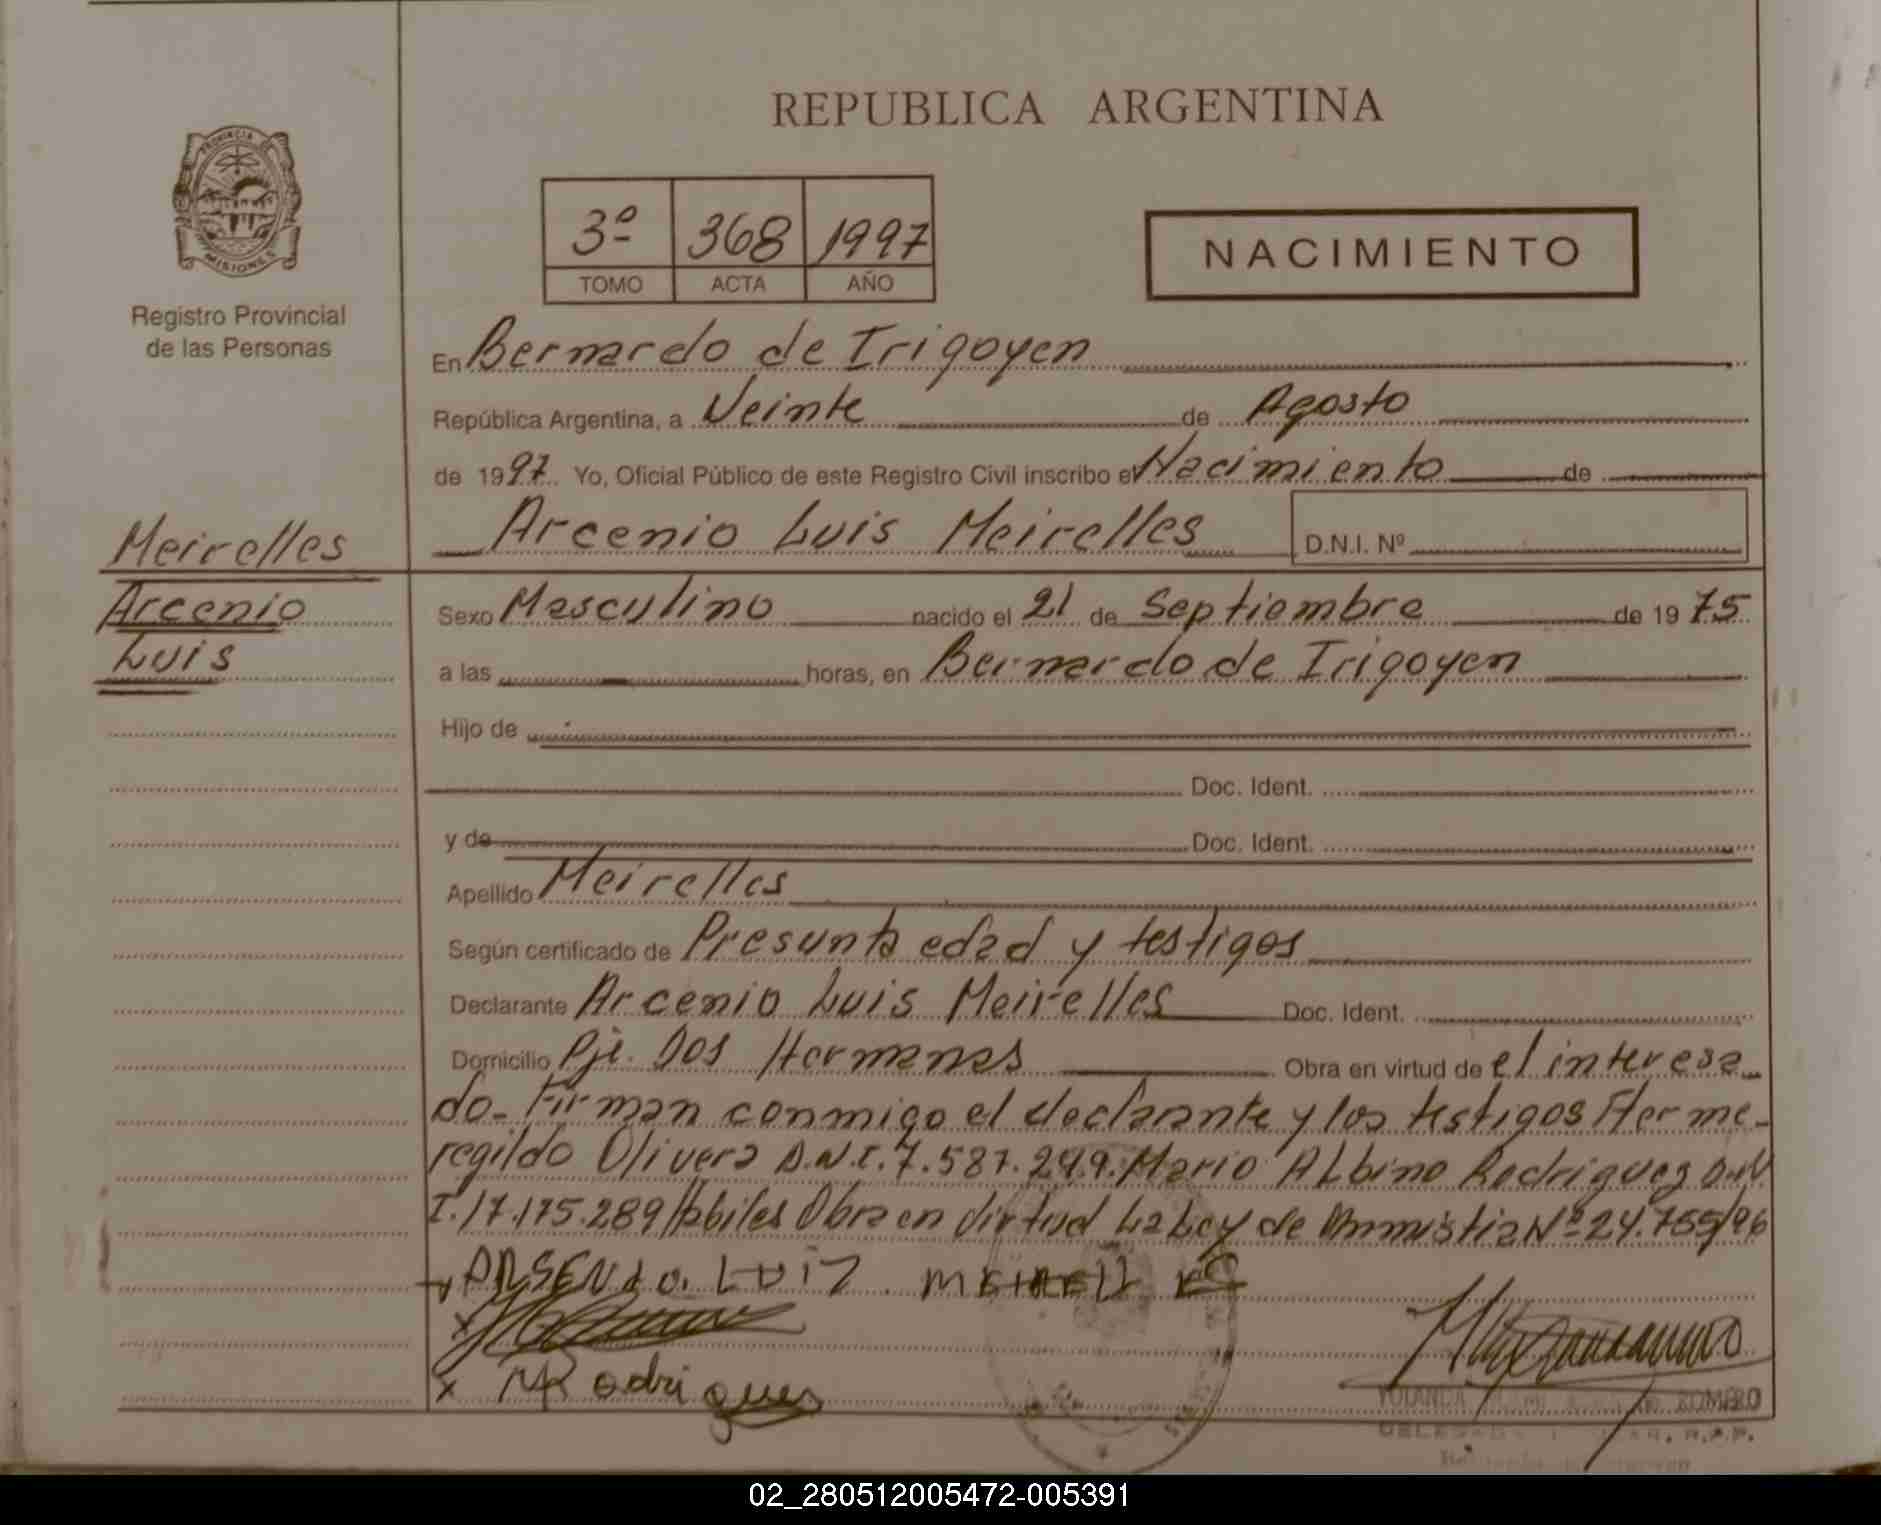 REPUBLICA ARGENTINA
PROVINCIA DE
MISIONES
Registro Provincial
de las Personas
3º 368 1997
TOMO ACTA AÑO
NACIMIENTO
En Bernardo de Irigoyen
República Argentina, a Veinte de Agosto
de 1997. Yo, Oficial Público de este Registro Civil inscribo el Nacimiento de
Arcenio Luis Meirelles D.N.I. Nº
Meirelles
Arcenio
Luis
Sexo Masculino nacido el 21 de Septiembre de 1975
a las horas, en Bernardo de Irigoyen
Hijo de
Doc. Ident.
y de Doc. Ident.
Apellido Meirelles
Según certificado de Presunta edad y testigos
Declarante Arcenio Luis Meirelles Doc. Ident.
Domicilio Pje. Dos Hermanas Obra en virtud de el interesa
do- Firman conmigo el declarante y los testigos Herme-
regildo Olivera D.N.I. 7.587.299. Mario Albino Rodriguez D.N
I. 17.175.289 Habiles Obra en Virtud La Ley de Ammistia Nº 24.755/96
ARSENIO. LUIZ MEIRELLES
x
x M Rodrigues
YOLANDA ROMERO
R.P.P.
02_280512005472-005391